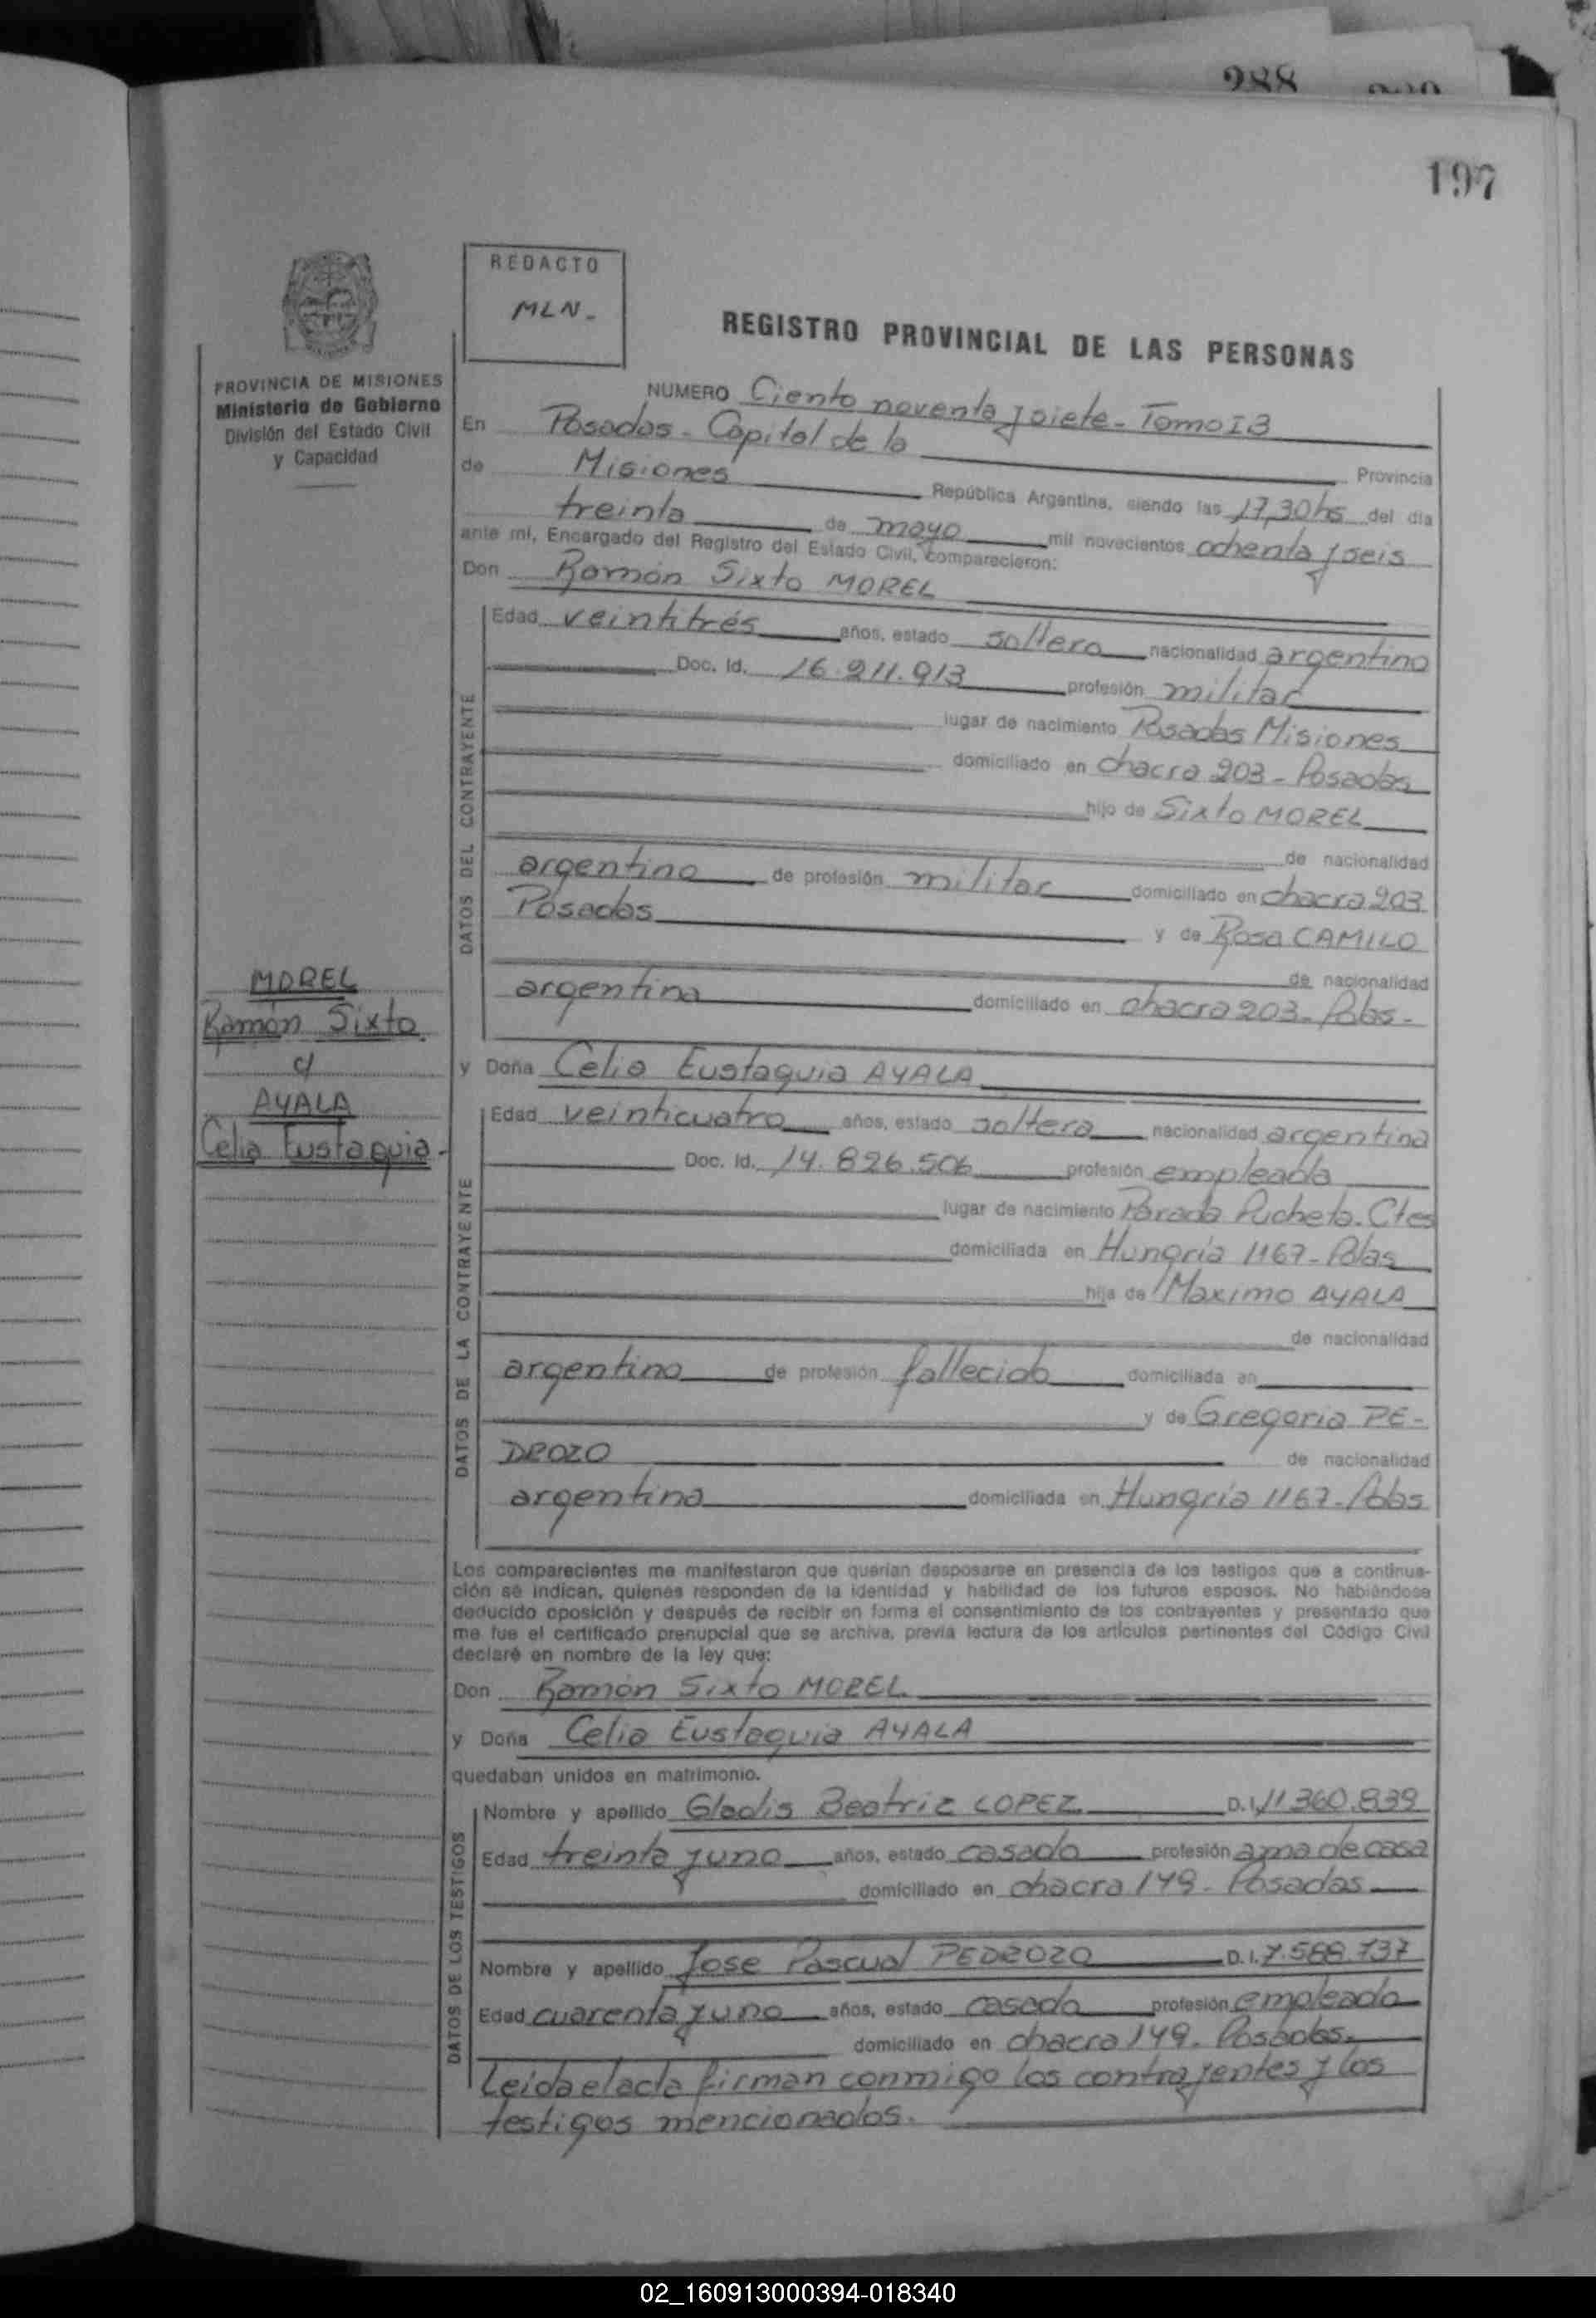 288
197
REDACTO
MLN-
REGISTRO PROVINCIAL DE LAS PERSONAS
PROVINCIA DE MISIONES
Ministerio de Gobierno
División del Estado Civil
y Capacidad
NUMERO Ciento noventa y siete - Tomo I B
En Posadas - Capital de la Provincia
de Misiones República Argentina, siendo las 17,30 hs del dia
treinta de mayo mil novecientos ochenta y seis
ante mi, Encargado del Registro del Estado Civil, comparecieron:
Don Ramón Sixto MOREL
DATOS DEL CONTRAYENTE
Edad veintitrés años, estado soltero nacionalidad argentino
Doc. Id. 16.211.913 profesión militar
lugar de nacimiento Posadas Misiones
domiciliado en chacra 203 - Posadas
hijo de Sixto MOREL
de nacionalidad
argentino de profesión militar domiciliado en chacra 203
Posadas y de Rosa CAMILO
de nacionalidad
argentina domiciliado en chacra 203 - Pdas -
MOREL
Ramón Sixto
c/
AYALA
Celia Eustaquia -
y Doña Celia Eustaquia AYALA
DATOS DE LA CONTRAYENTE
Edad veinticuatro años, estado soltera nacionalidad argentina
Doc. Id. 14.826.506 profesión empleada
lugar de nacimiento Parada Pucheta. Ctes
domiciliada en Hungría 1167 - Pdas
hija de Maximo AYALA
de nacionalidad
argentino de profesión fallecido domiciliada en
y de Gregoria PE-
DROZO de nacionalidad
argentina domiciliada en Hungría 1167 - Pdas
Los comparecientes me manifestaron que querian desposarse en presencia de los testigos que a continua-
ción se indican, quienes responden de la identidad y habilidad de los futuros esposos. No habiéndose
deducido oposición y después de recibir en forma el consentimiento de los contrayentes y presentado que
me fue el certificado prenupcial que se archiva, previa lectura de los artículos pertinentes del Código Civil
declaré en nombre de la ley que:
Don Ramón Sixto MOREL
y Doña Celia Eustaquia AYALA
quedaban unidos en matrimonio.
DATOS DE LOS TESTIGOS
Nombre y apellido Gladis Beatriz LOPEZ D.I. 11.360.839
Edad treinta y uno años, estado casada profesión ama de casa
domiciliado en chacra 149 - Posadas
Nombre y apellido Jose Pascual PEDROZO D.I. 7.588.737
Edad cuarenta y uno años, estado casado profesión empleado
domiciliado en chacra 149. Posadas.
Leida el acta firman conmigo los contrayentes y los
testigos mencionados.
02_160913000394-018340